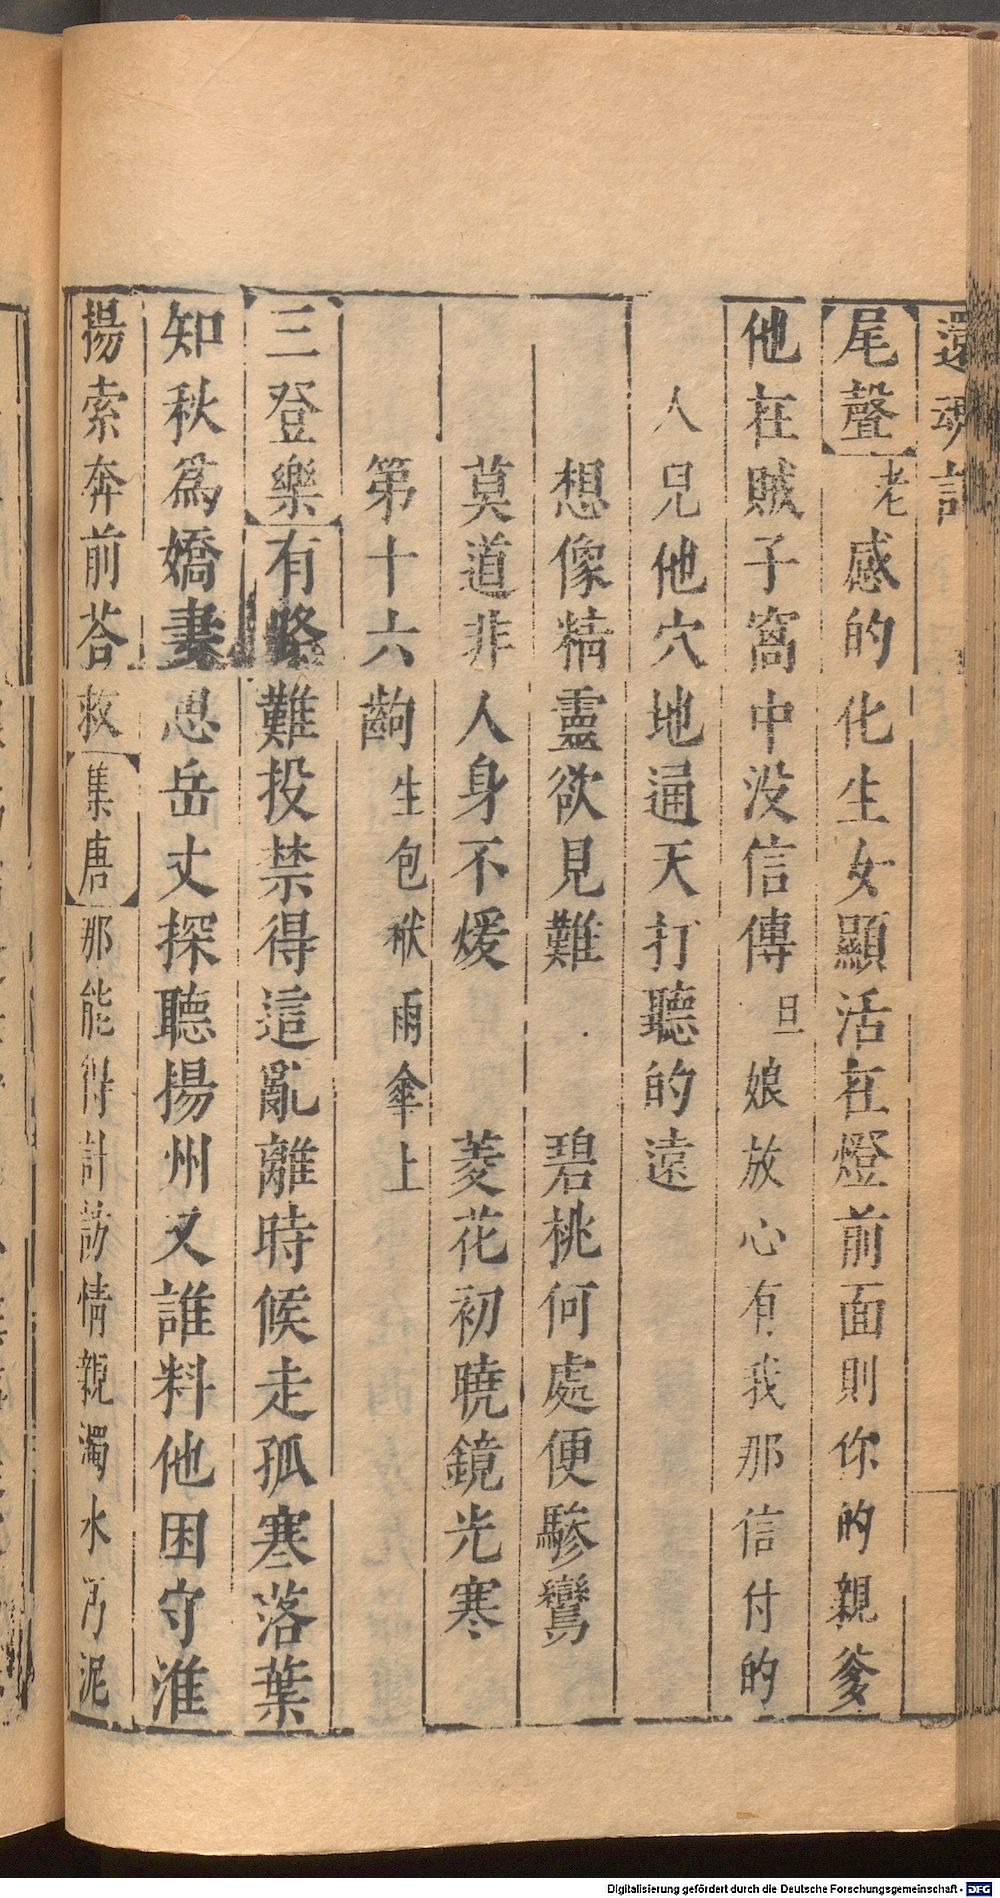 還魂記
尾聲老感的化生女顯活在燈前面則你的親爹
他在賊子窩中没信傳旦娘放心有我那信付的
人兒他穴地通天打聽的遠
想像精靈欲見難 碧桃何處便驂鸞
莫道非人身不煖 菱花初曉鏡光寒
第十六齣生包袱雨傘上
三登樂有路難投禁得這亂離時候走孤寒落葉
知秋為嬌妻思岳丈探聽揚州又誰料他困守淮
揚索奔前荅救集唐那能得計訪情親濁水污泥
Digitalisierung gefördert durch die Deutsche Forschungsgemeinschaft - DFG